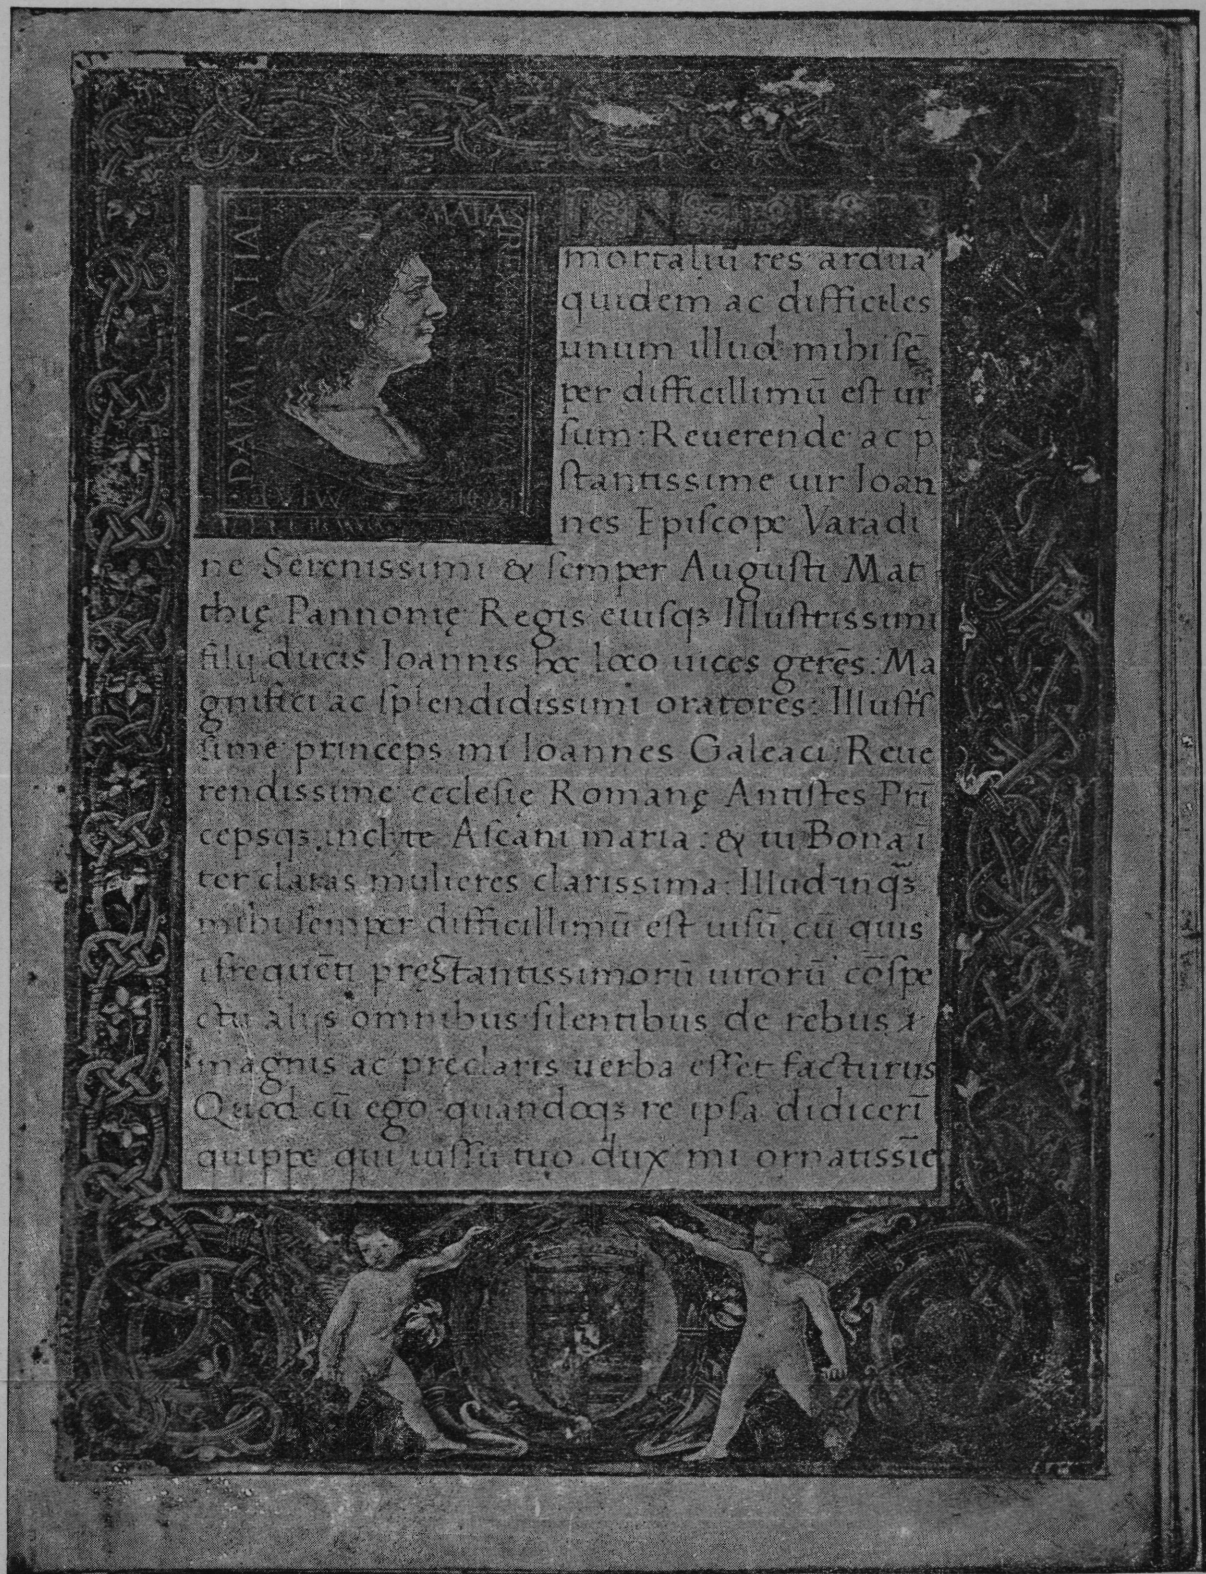 INTER
mortaliū res ardua
quidem ac difficiles
unum illud mihi sē
per difficillimū est ui
sum: Reuerende ac p̄
stantissime uir Ioan
nes Episcope Varadi
ne Serenissimi & semper Augusti Mat
thię Pannonię Regis eiusqꝫ Illustrissimi
filij ducis Ioannis hoc loco uices gerēs: Ma
gnifici ac splendidissimi oratores: Illustris
sime princeps mi Ioannes Galeaci: Reue
rendissime ecclesię Romanę Antistes Prī
cepsqꝫ inclyte Ascani maria: & tu Bona ī
ter claras mulieres clarissima: Illud inqꝫ
mihi semper difficillimū est uisū, cū quis
ī frequēti pręstantissimorū uirorū cōspe
ctu alijs omnibus silentibus de rebus
magnis ac preclaris uerba esset facturus
Quod cū ego quandoqꝫ re ipsa didicerī
quippe qui iussu tuo dux mi ornatissīe